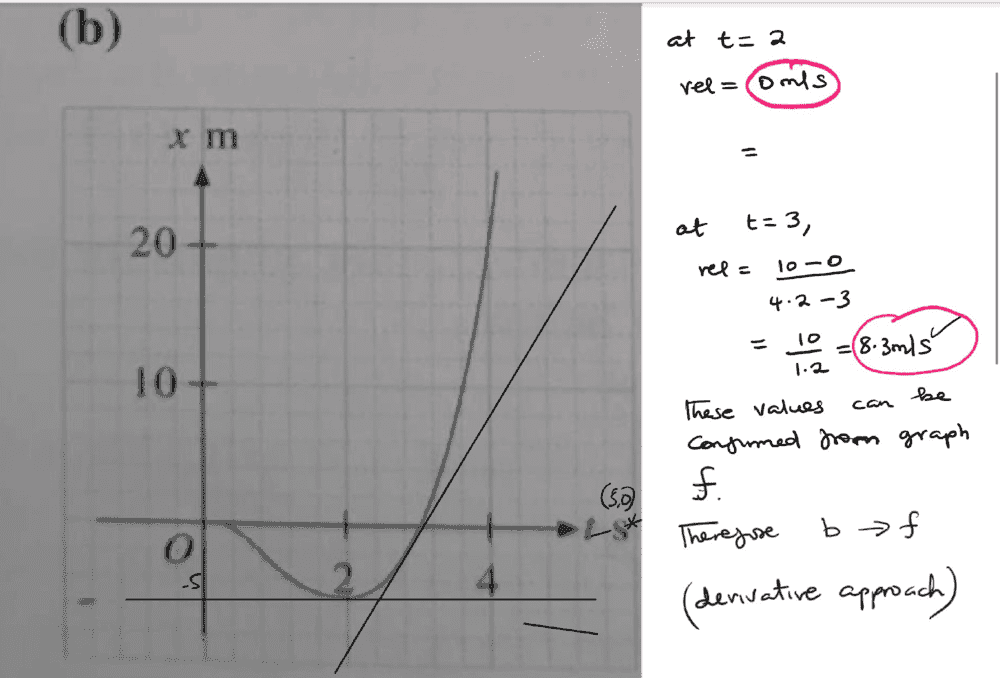 (b)
x m
20
10
O
-5
2
4
(5,0)
t s*
at t = 2
vel = 0 m/s
=
at t = 3,
vel = 10 - 0
4.2 - 3
= 10 = 8.3 m/s ✓
1.2
These values can be
confirmed from graph
f.
Therefore b → f
(derivative approach)